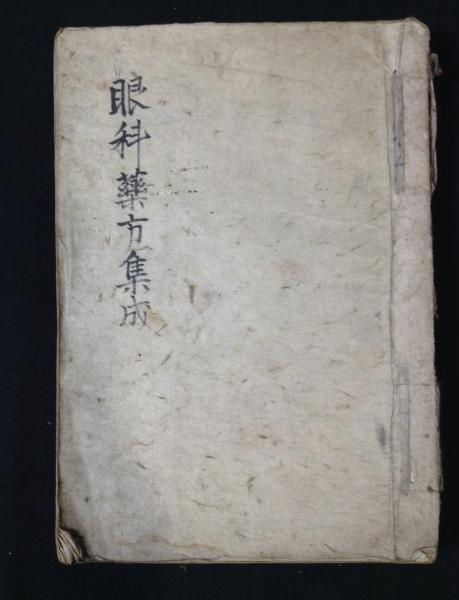 眼科藥方集成